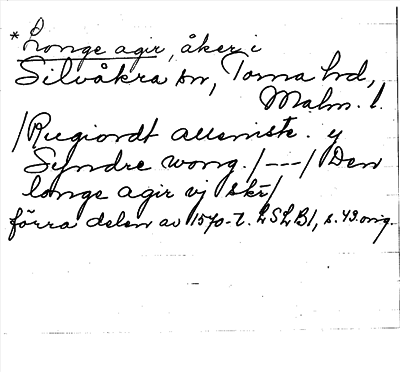 *Longe agir, åker i
Silvåkra sn, Torna hd,
Malm. l.
/Rugiordt alleniste. y
Syndre wong./---/Den
longe agir vj skr/
förra delen av 1570-t. LSLB1, s. 43. orig.